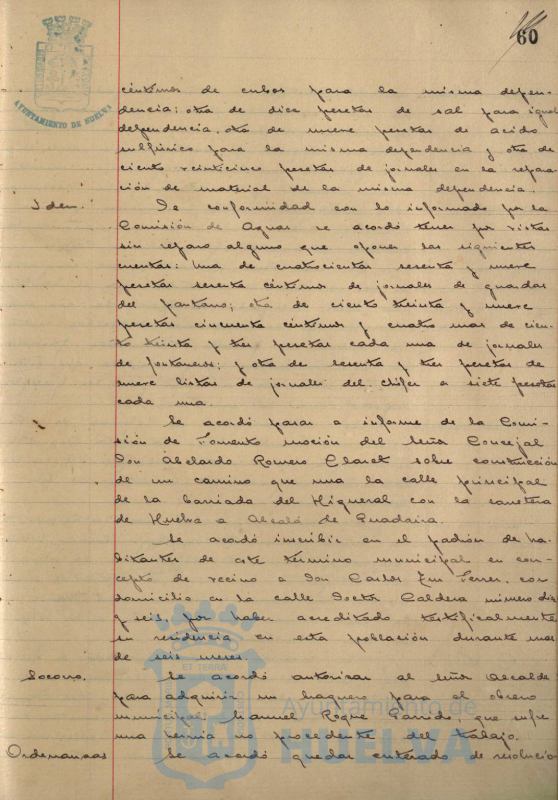 60
AYUNTAMIENTO DE HUELVA
céntimos de cubos para la misma depen-
dencia; otra de diez pesetas de sal para igual
dependencia, otra de nueve pesetas de acido
sulfúrico para la misma dependencia y otra de
ciento veinticinco pesetas de jornales en la repara-
ción de material de la misma dependencia.
Idem.
De conformidad con lo informado por la
Comisión de Aguas se acordó tener por vistas
sin reparo alguno que oponer las siguientes
cuentas: Una de cuatrocientas sesenta y nueve
pesetas sesenta céntimos de jornales de guardas
del pantano; otra de ciento treinta y nueve
pesetas cincuenta céntimos y cuatro mas de cien-
to treinta y tres pesetas cada una de jornales
de fontaneros; y otra de sesenta y tres pesetas de
nueve listas de jornales del chófer a siete pesetas
cada una.
Se acordó pasar a informe de la Comi-
sión de Fomento moción del Señor Concejal
Don Abelardo Romero Claret sobre construcción
de un camino que una la calle principal
de la barriada del Higueral con la carretera
de Huelva a Alcalá de Guadaira.
Se acordó inscribir en el padrón de ha-
bitantes de este término municipal en con-
cepto de vecino a Don Carlos Ferrer, con
domicilio en la calle Doctor Caldera número diez
y seis, por haber acreditado testificalmente
su residencia en esta población durante mas
de seis meses.
Socorro.
Se acordó autorizar al Señor Alcalde
para adquirir un braguero para el obrero
municipal Manuel Roque Garrido, que sufre
una hernia no procedente del trabajo.
Ordenanzas
Se acordó quedar enterado de resolución
ET TERRA
Ayuntamiento de
HUELVA